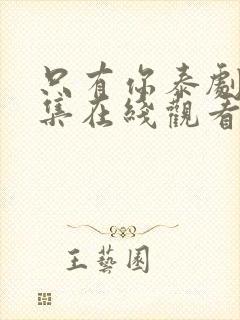 只有你泰劇
集在綫觀看
王藝園